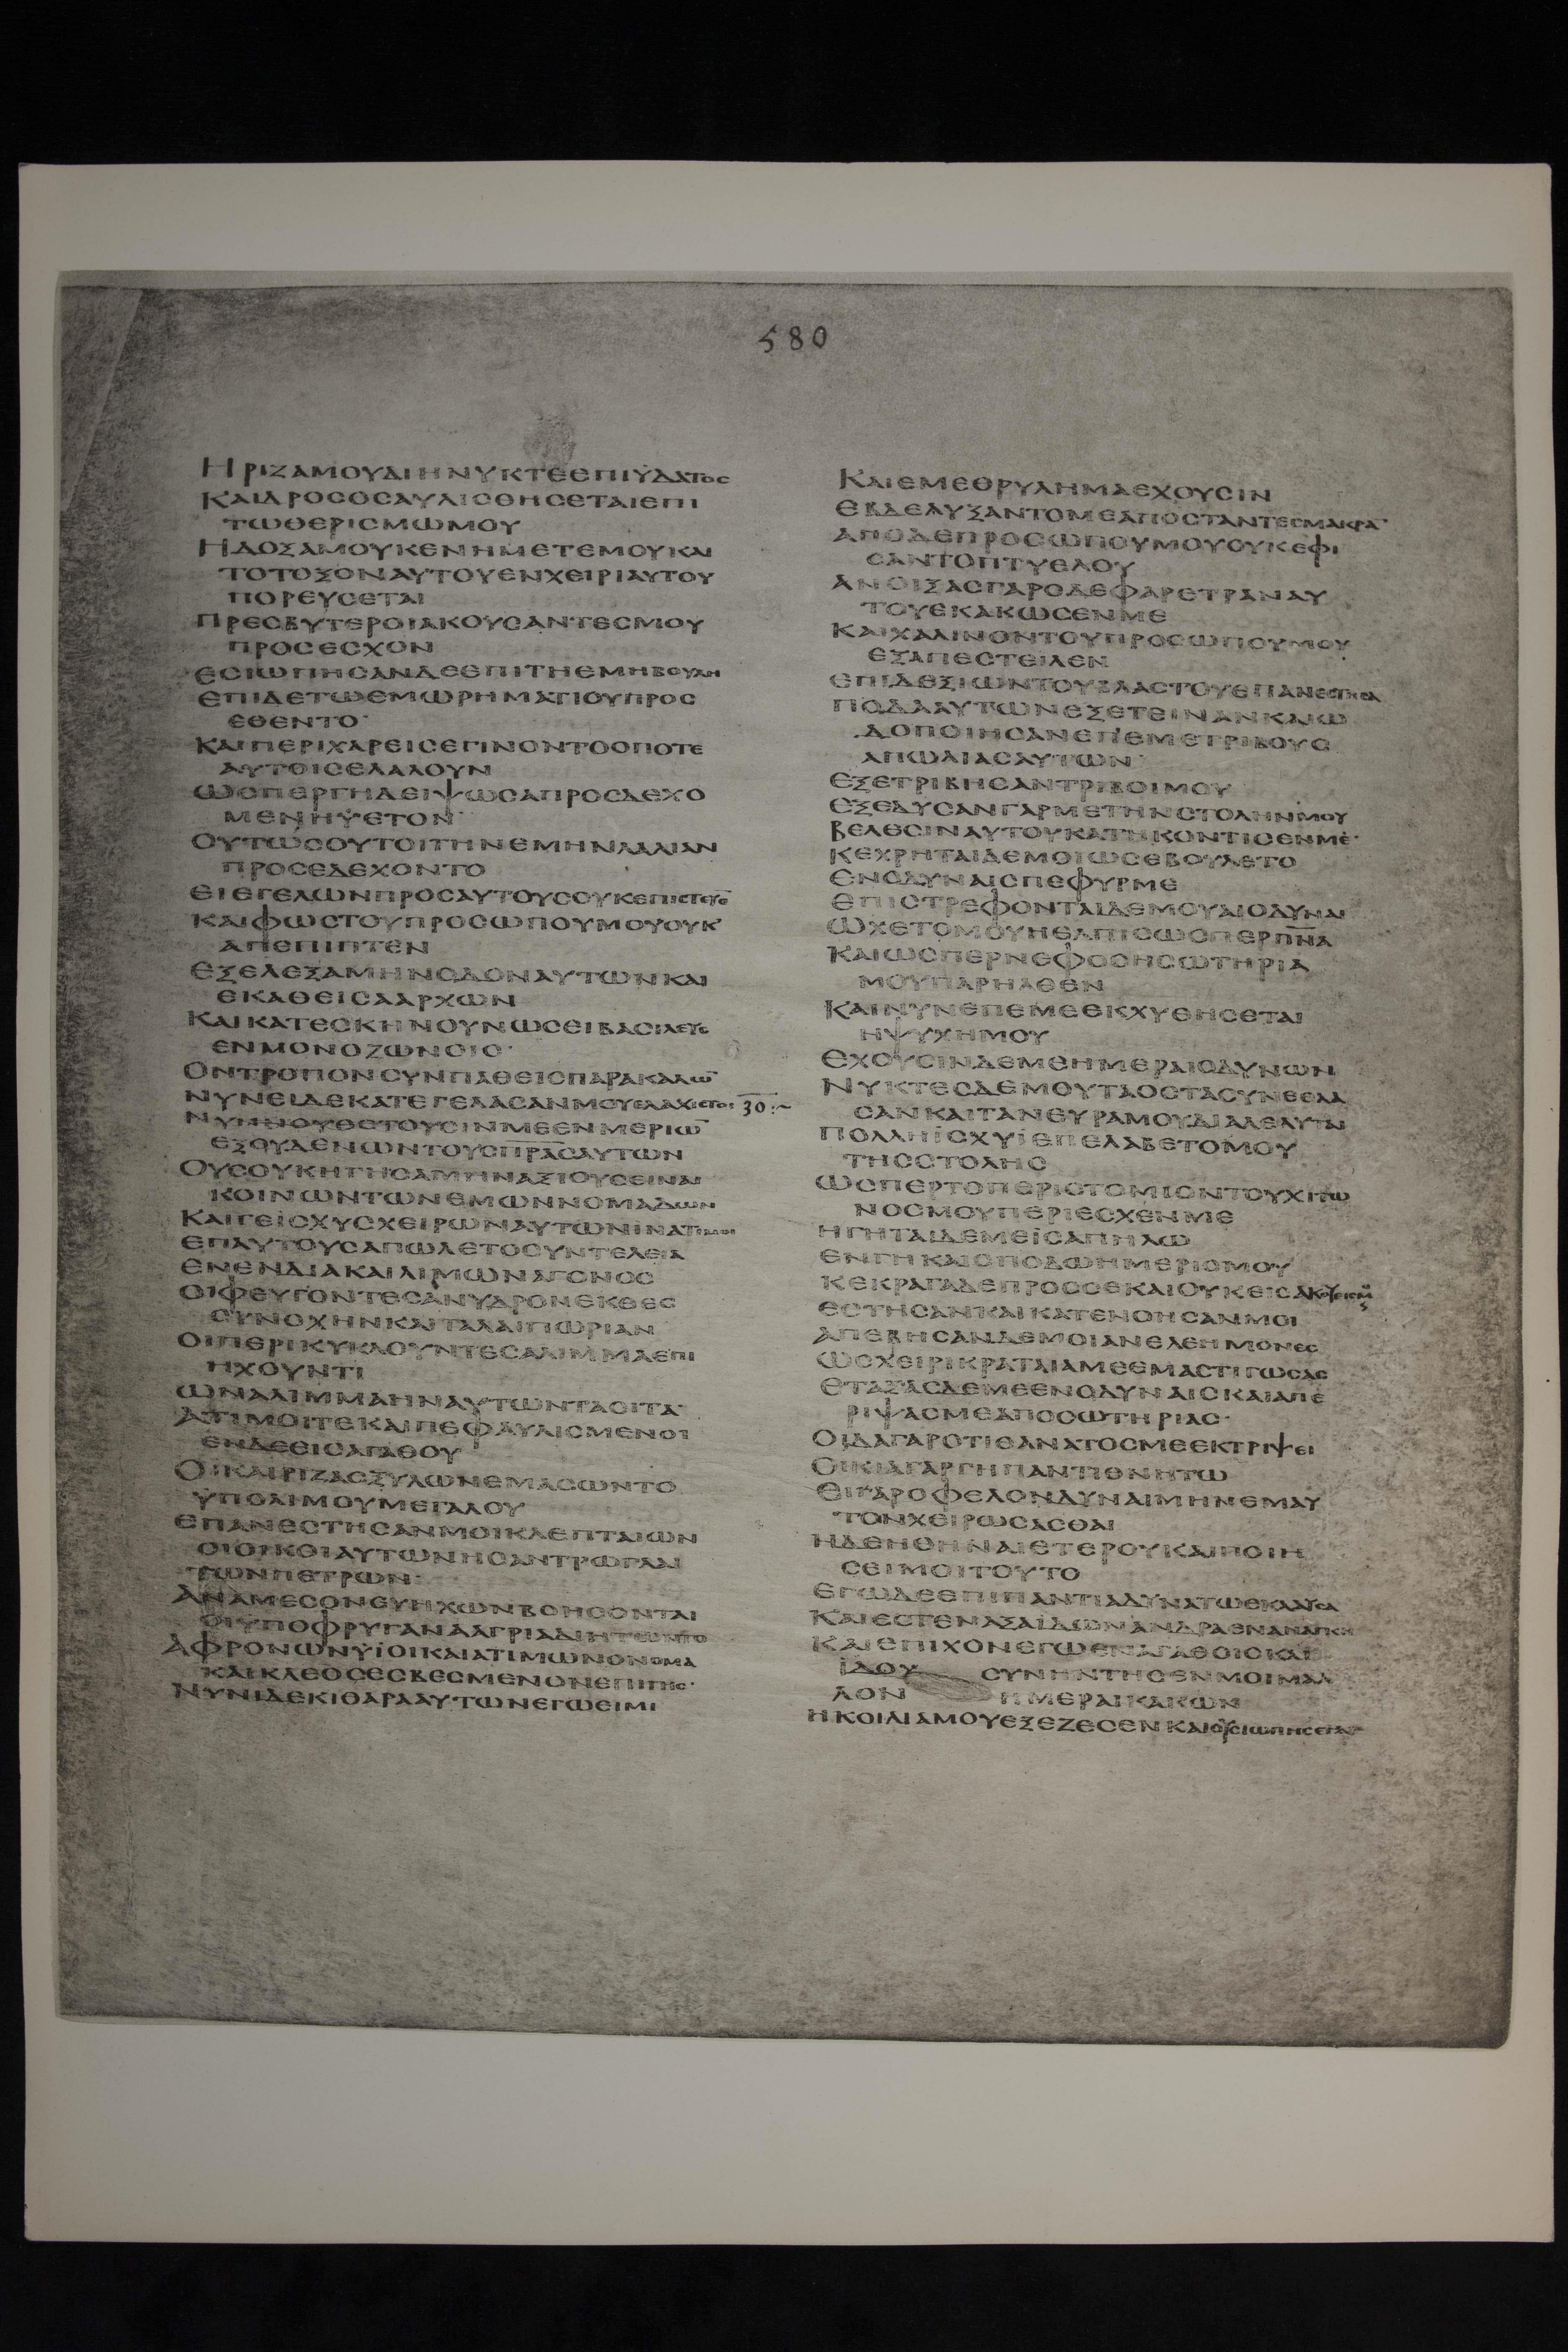 580
ΗΡΙΖΑΜΟΥΔΙΗΝΥΚΤΕΕΠΙΫΔΑΤΟС
ΚΑΙΔΡΟСΟСΑΥΛΙСΘΗСΕΤΑΙΕΠΙ
ΤΩΘΕΡΙСΜΩΜΟΥ
ΗΔΟΞΑΜΟΥΚΕΝΗΜΕΤΕΜΟΥΚΑΙ
ΤΟΤΟΞΟΝΑΥΤΟΥΕΝΧΕΙΡΙΑΥΤΟΥ
ΠΟΡΕΥСΕΤΑΙ
ΠΡΕСΒΥΤΕΡΟΙΑΚΟΥСΑΝΤΕСΜΟΥ
ΠΡΟСΕСΧΟΝ
ΕСΙΩΠΗСΑΝΔΕΕΠΙΤΗΕΜΗΒΟΥΛΗ
ΕΠΙΔΕΤΩΕΜΩΡΗΜΑΤΙΟΥΠΡΟС
ΕΘΕΝΤΟ·
ΚΑΙΠΕΡΙΧΑΡΕΙСΕΓΙΝΟΝΤΟΟΠΟΤΕ
ΑΥΤΟΙСΕΛΑΛΟΥΝ
ΩСΠΕΡΓΗΔΕΙΨΩСΑΠΡΟСΔΕΧΟ
ΜΕΝΗΫΕΤΟΝ·
ΟΥΤΩСΟΥΤΟΙΤΗΝΕΜΗΝΛΑΛΙΑΝ
ΠΡΟСΕΔΕΧΟΝΤΟ
ΕΙΕΓΕΛΩΝΠΡΟСΑΥΤΟΥСΟΥΚΕΠΙСΤΕΥΟ̅
ΚΑΙΦΩСΤΟΥΠΡΟСΩΠΟΥΜΟΥΟΥΚ
ΑΠΕΠΙΠΤΕΝ
ΕΞΕΛΕΞΑΜΗΝΟΔΟΝΑΥΤΩΝΚΑΙ
ΕΚΑΘΕΙСΑΑΡΧΩΝ
ΚΑΙΚΑΤΕСΚΗΝΟΥΝΩСΕΙΒΑСΙΛΕΥС
ΕΝΜΟΝΟΖΩΝΟΙС·
ΟΝΤΡΟΠΟΝΟΥΝΠΑΘΕΙСΠΑΡΑΚΑΛΩ̅
ΝΥΝΕΙΔΕΚΑΤΕΓΕΛΑСΑΝΜΟΥΕΛΑΧΙСΤΟΙ 30:~
ΝΥΝΝΟΥΘΕΤΟΥСΙΝΜΕΕΝΜΕΡΙΩ̅
ΕΞΟΥΔΕΝΩΝΤΟΥСΠΡΑСΑΥΤΩΝ
ΟΥСΟΥΚΗΓΗСΑΜΗΝΑΞΙΟΥСΕΙΝΑΙ
ΚΟΙΝΩΝΤΩΝΕΜΩΝΝΟΜΑΔΩΝ
ΚΑΙΓΕΙСΧΥСΧΕΙΡΩΝΑΥΤΩΝΙΝΑΤΙΜΟΙ
ΕΠΑΥΤΟΥСΑΠΩΛΕΤΟСΥΝΤΕΛΕΙΑ
ΕΝΕΝΔΙΑΚΑΙΛΙΜΩΝΑΓΟΝΟС
ΟΙΦΕΥΓΟΝΤΕСΑΝΥΔΡΟΝΕΚΘΕС
СΥΝΟΧΗΝΚΑΙΤΑΛΑΙΠΩΡΙΑΝ
ΟΙΠΕΡΙΚΥΚΛΟΥΝΤΕСΑΛΙΜΜΑΕΠΙ
ΗΧΟΥΝΤΙ
ΩΝΑΛΙΜΜΑΗΝΑΥΤΩΝΤΑСΙΤΑ·
ΑΤΙΜΟΙΤΕΚΑΙΠΕΦΑΥΛΙСΜΕΝΟΙ
ΕΝΔΕΕΙСΑΓΑΘΟΥ
ΟΙΚΑΙΡΙΖΑСΞΥΛΩΝΕΜΑСΩΝΤΟ
ΫΠΟΛΙΜΟΥΜΕΓΑΛΟΥ
ΕΠΑΝΕСΤΗСΑΝΜΟΙΚΛΕΠΤΑΙΩΝ
ΟΙΟΙΚΟΙΑΥΤΩΝΗСΑΝΤΡΩΓΛΑΙ
ΤΩΝΠΕΤΡΩΝ·
ΑΝΑΜΕСΟΝΕΥΗΧΩΝΒΟΗСΟΝΤΑΙ
ΟΙΫΠΟΦΡΥΓΑΝΑΑΓΡΙΑΔΙΗΤΩΝΤΟ
ΑΦΡΟΝΩΝΥΪΟΙΚΑΙΑΤΙΜΩΝΟΝΟΜΑ
ΚΑΙΚΛΕΟСΕСΒΕСΜΕΝΟΝΕΠΙΓΗС·
ΝΥΝΙΔΕΚΙΘΑΡΑΑΥΤΩΝΕΓΩΕΙΜΙ
ΚΑΙΕΜΕΘΡΥΛΗΜΑΕΧΟΥСΙΝ
ΕΒΔΕΛΥΞΑΝΤΟΜΕΑΠΟСΤΑΝΤΕСΜΑΚΡΑ̅
ΑΠΟΔΕΠΡΟСΩΠΟΥΜΟΥΟΥΚΕΦΙ
СΑΝΤΟΠΤΥΕΛΟΥ
ΑΝΟΙΞΑСΓΑΡΟΔΕΦΑΡΕΤΡΑΝΑΥ
ΤΟΥΕΚΑΚΩСΕΝΜΕ
ΚΑΙΧΑΛΙΝΟΝΤΟΥΠΡΟСΩΠΟΥΜΟΥ
ΕΞΑΠΕСΤΕΙΛΕΝ
ΕΠΙΔΕΞΙΩΝΤΟΥΒΛΑСΤΟΥΕΠΑΝΕСΤΗСΑ
ΠΟΔΑΑΥΤΩΝΕΞΕΤΕΙΝΑΝΚΑΙΩ
ΔΟΠΟΙΗСΑΝΕΠΕΜΕΤΡΙΒΟΥС
ΑΠΩΛΙΑСΑΥΤΩΝ·
ΕΞΕΤΡΙΒΗСΑΝΤΡΙΒΟΙΜΟΥ
ΕΞΕΔΥСΑΝΓΑΡΜΕΤΗΝСΤΟΛΗΝΜΟΥ
ΒΕΛΕСΙΝΑΥΤΟΥΚΑΤΗΚΟΝΤΙСΕΝΜΕ·
ΚΕΧΡΗΤΑΙΔΕΜΟΙΩСΕΒΟΥΛΕΤΟ
ΕΝΟΔΥΝΑΙСΠΕΦΥΡΜΕ
ΕΠΙСΤΡΕΦΟΝΤΑΙΔΕΜΟΥΑΙΟΔΥΝΑΙ
ΩΧΕΤΟΜΟΥΗΕΛΠΙСΩСΠΕΡΠ̅Ν̅Α
ΚΑΙΩСΠΕΡΝΕΦΟСΗСΩΤΗΡΙΑ
ΜΟΥΠΑΡΗΛΘΕΝ
ΚΑΙΝΥΝΕΠΕΜΕΕΚΧΥΘΗСΕΤΑΙ
ΗΨΥΧΗΜΟΥ
ΕΧΟΥСΙΝΔΕΜΕΗΜΕΡΑΙΟΔΥΝΩΝ
ΝΥΚΤΕСΔΕΜΟΥΤΑΟСΤΑСΥΝΘΕΛΑ
СΑΝΚΑΙΤΑΝΕΥΡΑΜΟΥΔΙΑΛΕΛΥΤΑΙ
ΠΟΛΛΗΪСΧΥΪΕΠΕΛΑΒΕΤΟΜΟΥ
ΤΗССΤΟΛΗС
ΩСΠΕΡΤΟΠΕΡΙСΤΟΜΙΟΝΤΟΥΧΙΤΩ
ΝΟСΜΟΥΠΕΡΙΕСΧΕΝΜΕ
ΗΓΗΤΑΙΔΕΜΕΙСΑΠΗΛΩ
ΕΝΓΗΚΑΙСΠΟΔΩΗΜΕΡΙСΜΟΥ
ΚΕΚΡΑΓΑΔΕΠΡΟССΕΚΑΙΟΥΚΕΙСΑΚΟΥΕΙСΜ
ΕСΤΗСΑΝΚΑΙΚΑΤΕΝΟΗСΑΝΜΟΙ
ΑΠΕΒΗСΑΝΔΕΜΟΙΑΝΕΛΕΗΜΟΝΕС
ΩСΧΕΙΡΙΚΡΑΤΑΙΑΜΕΕΜΑСΤΙΓΩСΑС
ΕΤΑΞΑСΔΕΜΕΕΝΟΔΥΝΑΙСΚΑΙΑΠΕ
ΡΙΨΑСΜΕΑΠΟСΩΤΗΡΙΑС·
ΟΙΔΑΓΑΡΟΤΙΘΑΝΑΤΟСΜΕΕΚΤΡΙΨΕΙ
ΟΙΚΙΑΓΑΡΓΗΠΑΝΤΙΘΝΗΤΩ
ΕΙΓΑΡΟΦΕΛΟΝΔΥΝΑΙΜΗΝΕΜΑΥ
ΤΟΝΧΕΙΡΩСΑСΘΑΙ
ΗΔΕΗΘΗΝΑΙΕΤΕΡΟΥΚΑΙΠΟΙΗ
СΕΙΜΟΙΤΟΥΤΟ
ΕΓΩΔΕΕΠΙΠΑΝΤΙΑΔΥΝΑΤΩΕΚΛΑΥСΑ
ΚΑΙΕСΤΕΝΑΞΑΪΔΩΝΑΝΔΡΑΕΝΑΝΑΓΚΗ
ΚΑΙΕΠΙΧΟΝΕΓΩΕΝΑΓΑΘΟΙСΚΑΙ
ΪΔΟΥ СΥΝΗΝΤΗСΕΝΜΟΙΜΑΛ
ΛΟΝ ΗΜΕΡΑΙΚΑΚΩΝ
ΗΚΟΙΛΙΑΜΟΥΕΞΕΖΕСΕΝΚΑΙΟΥСΙΩΠΗСΕΤΑΙ